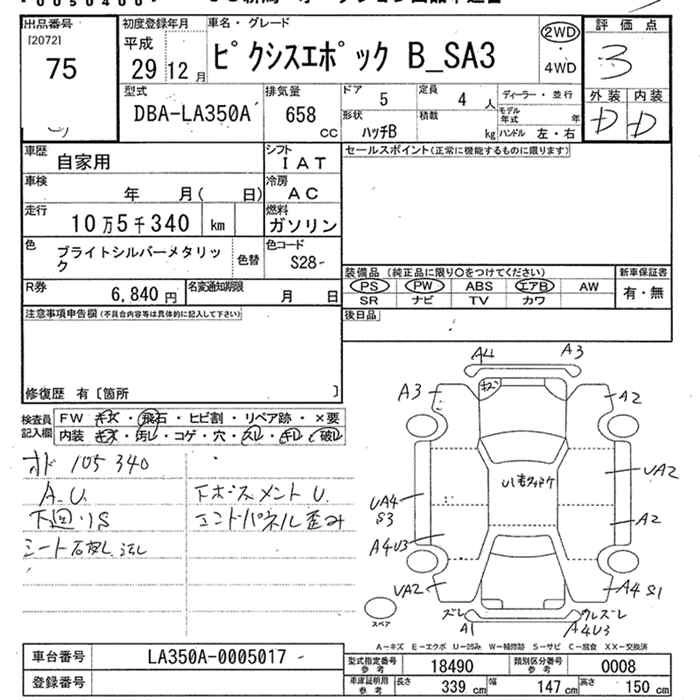 出品番号
[2072]
75
初度登録年月
平成
29 12 月
車名・グレード
ピクシスエポック B_SA3
2WD
・
4WD
評価点
3
外装 内装
D D
型式
DBA-LA350A
排気量
658
cc
ドア
5
定員
4 人
ディーラー・並行
モデル年式 年
形状
ハッチB
積載
kg
ハンドル 左・右
車歴
自家用
シフト
IAT
車検
年 月( 日)
冷房
AC
走行
10万5千340 km
燃料
ガソリン
色
ブライトシルバーメタリック
色替
色コード
S28-
R券
6,840 円
名変通知期限
月 日
セールスポイント(正常に機能するものに限ります)
装備品(純正品に限り○をつけてください)
PS PW ABS エアB AW
SR ナビ TV カワ
新車保証書
有・無
後日品
注意事項申告欄(不具合内容等は具体的に記入して下さい)
修復歴 有〔箇所 〕
検査員記入欄
FW キズ・飛石・ヒビ割・リペア跡・×要
内装 キズ・汚レ・コゲ・穴・スレ・キレ・破レ
オド 105340
A.U.
下回りS
シート
エンドパネル歪み
A4 A3
A3
A2
キズ
UA2
UA4
S3
A2
A4U3
UA2
A4 S1
ズレ
A1
A4U3
スペア
A-キズ E-エクボ U-凹み W-補修跡 S-サビ C-腐食 XX-交換済
車台番号
LA350A-0005017
登録番号
型式指定番号
参考
18490
類別区分番号
参考
0008
車庫証明用
参考
長さ
339 cm
幅
147 cm
高さ
150 cm